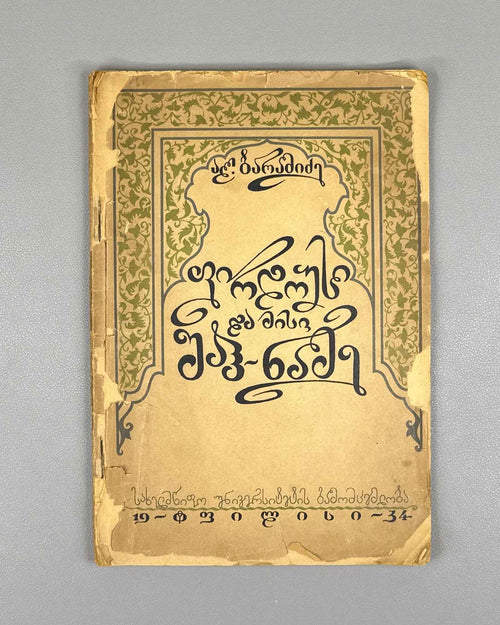 ალ. ბარამიძე
ფირდოუსი
და მისი
შაჰ-ნამე
სახელმწიფო უნივერსიტეტის გამომცემლობა
19-ტფილისი-34